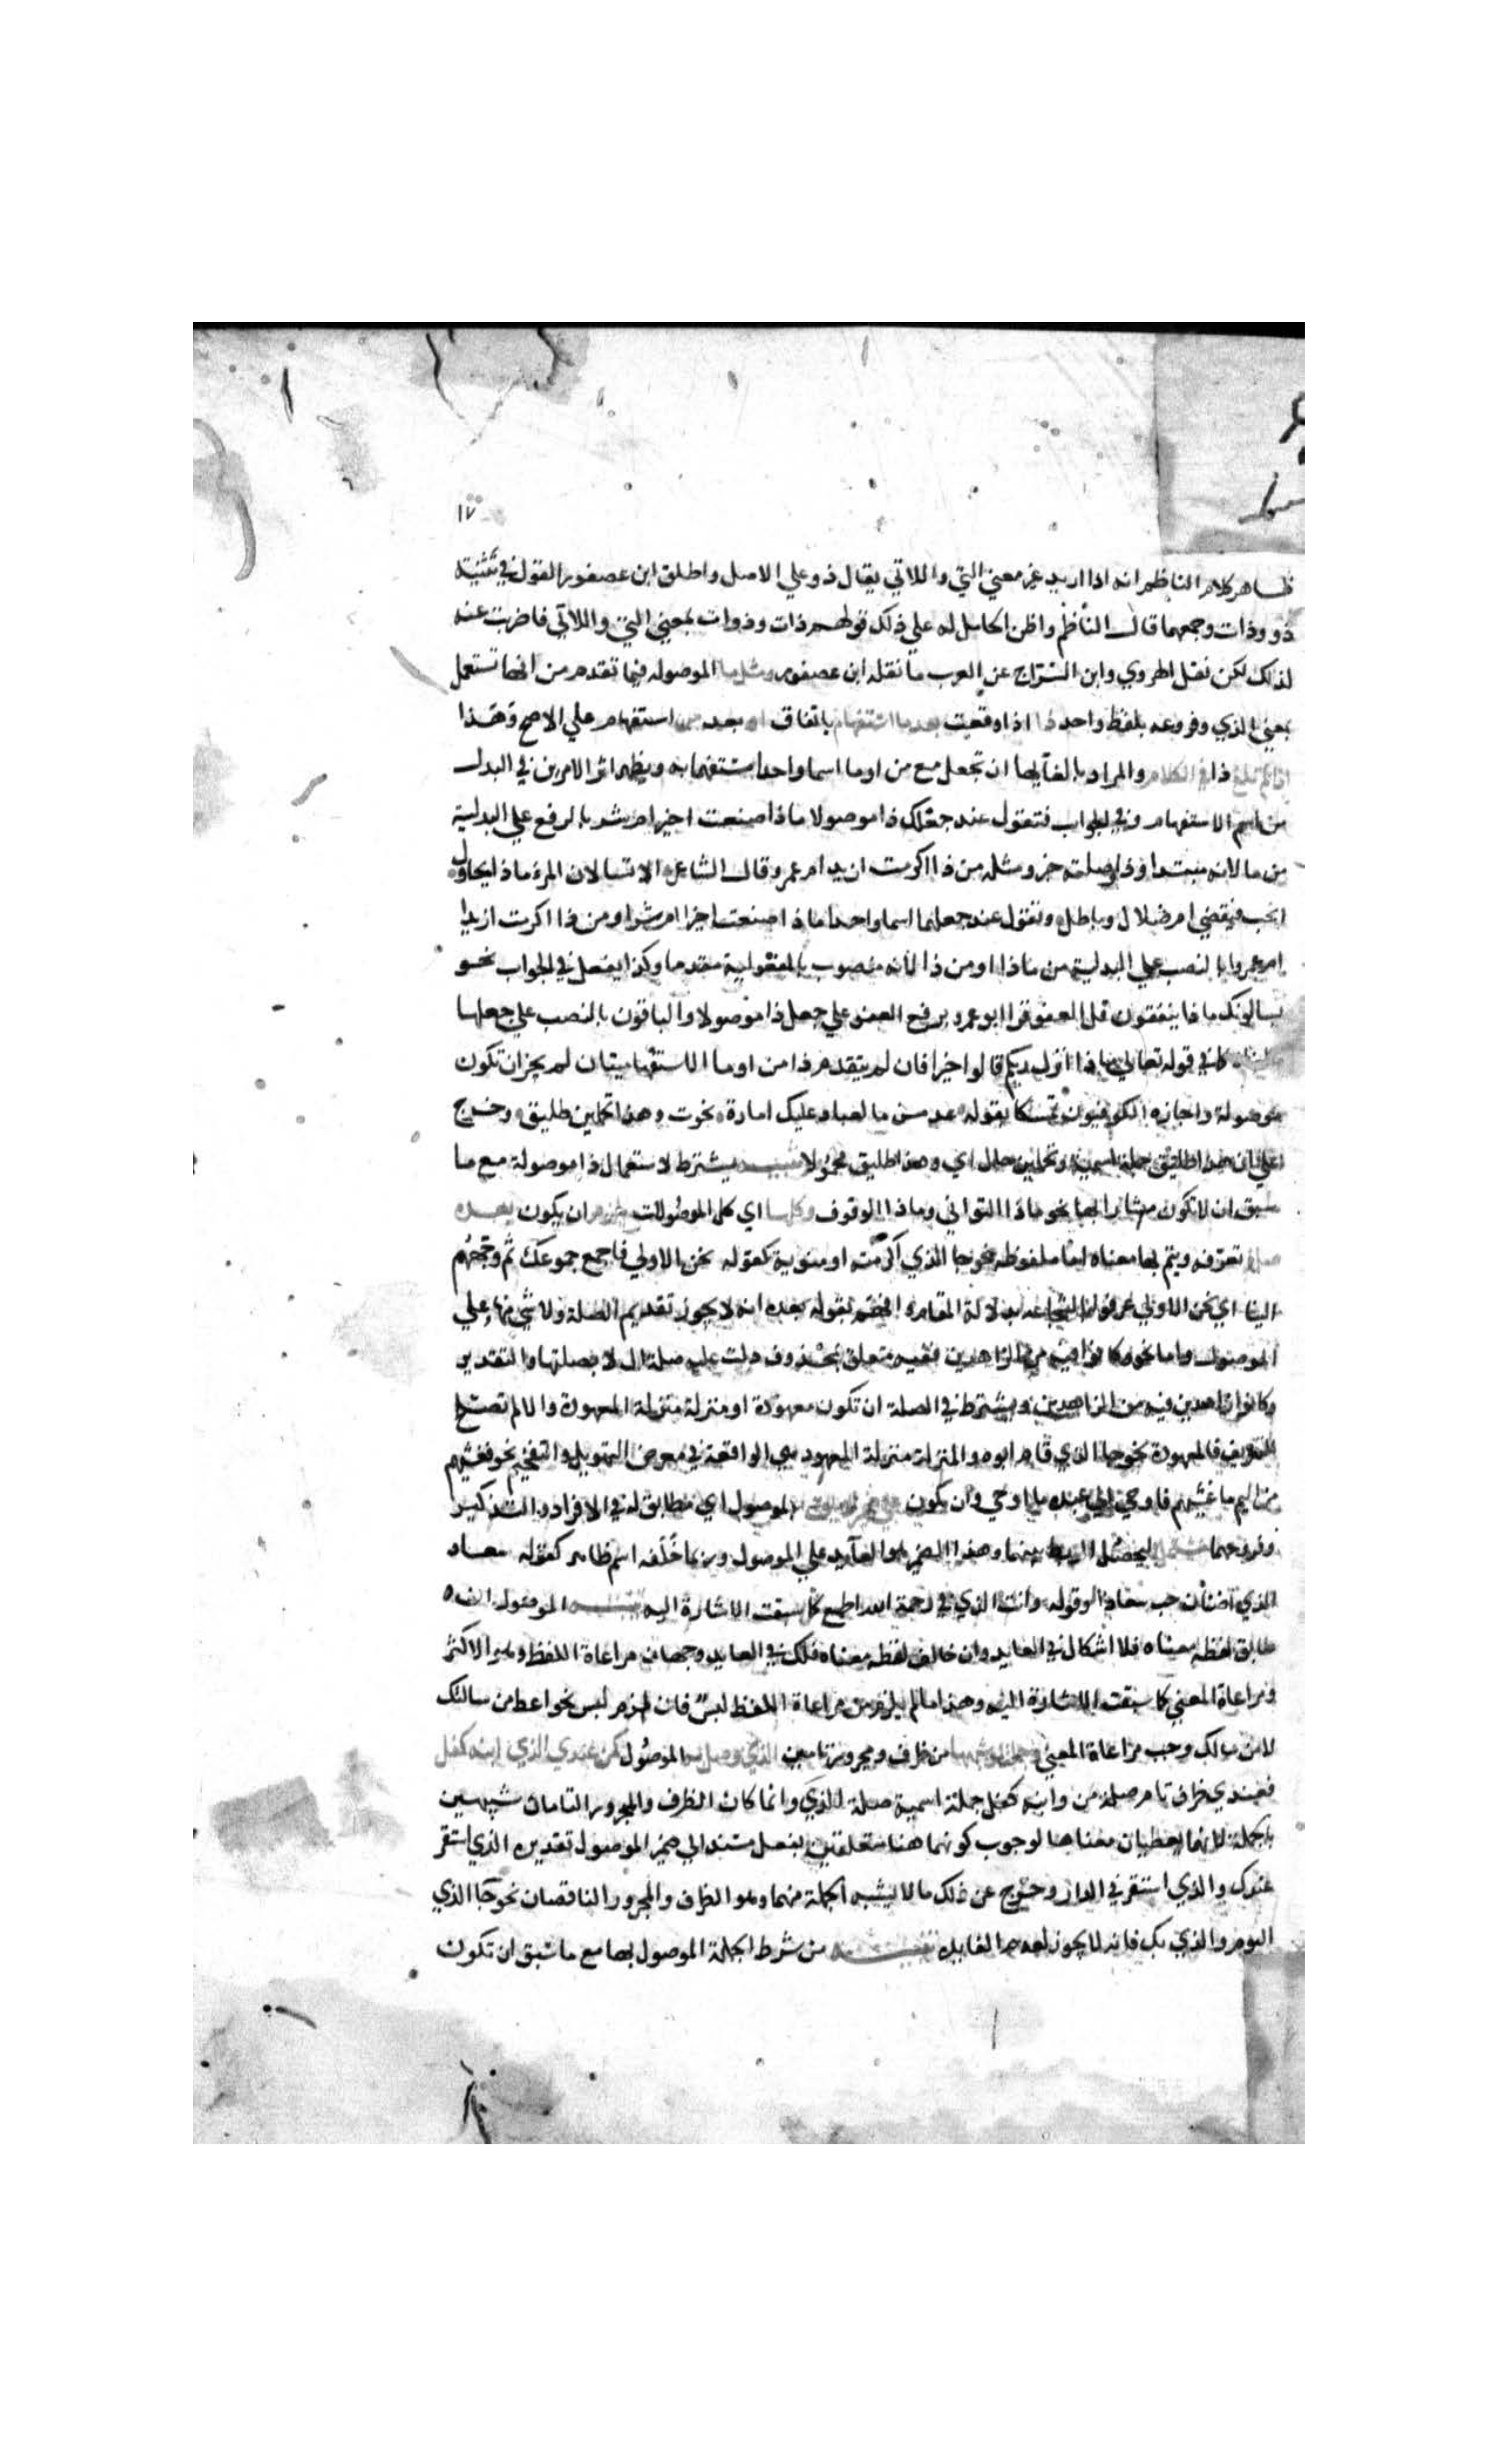 ١٧
ظاهر كلام الناظم انه اذا اريد غير معني التي واللاتي يقال ذو علي الاصل واطلق ابن عصفور القول في تثنية
ذو وذات وجمعهما قال الناظم واظن الحامل له علي ذلك قولهم ذات وذوات بمعني التي واللاتي فاضربت عنه
لذلك لكن نقل الهروي وابن السراج عن العرب ما نقله ابن عصفور ومثل ما الموصوله فيما تقدم من انها تستعمل
بمعني الذي وفروعه بلفظ واحد ذا اذا وقعت بعد ما استفهام باتفاق او بعد من استفهام علي الاصح وهذا
اذا لم تلغ ذا في الكلام والمراد بالغايها ان تجعل مع من او ما اسما واحدا مستفهما به ويظهر اثر الامرين في البدل
من اسم الاستفهام وفي الجواب فتقول عند جعلك ذا موصولا ماذا صنعت اخير ام شر بالرفع علي البدلية
من ما لانه مبتدا وذا وصلته خبر ومثله من ذا اكرمت ازيد ام عمرو قال الشاعر الا تسالان المرء ماذا يحاول
انحب فيقضي ام ضلال وباطل وتقول عند جعلهما اسما واحدا ماذا صنعت اخيرا ام شرا ومن ذا اكرمت ازيدا
ام عمروا بالنصب علي البدلية من ماذا او من ذا لانه منصوب بالمفعولية مقدما وكذا يفعل في الجواب نحو
يسالونك ماذا ينفقون قل العفو قرا ابو عمرو برفع العفو علي جعل ذا موصولا والباقون بالنصب علي جعلها
كما في قوله تعالي ماذا انزل ربكم قالوا خيرا فان لم يتقدم ذا من او ما الاستفهاميتان لم يجز ان تكون
موصولة واجازه الكوفيون تمسكا بقوله عدس ما لعباد عليك امارة نجوت وهذا تحملين طليق وخرج
علي ان هذا طليق جملة اسمية وتحملين حال اي وهذا طليق محمولا تنبيه يشترط لاستعمال ذا موصولة مع ما
سبق ان لا تكون مشارا بها نحو ماذا التواني وماذا الوقوف وكلها اي كل الموصولات يلزم ان يكون بعده
صلة تعرفه ويتم بها معناه اما ملفوظه نحو جا الذي اكرمته او منوية كقوله نحن الاولي فاجمع جموعك ثم وجههم
الينا اي نحن الاولي عرفوا بالشجاعة بدلالة المقام وافهم بقوله بعده انه لا يجوز تقديم الصلة ولا شي منها علي
الموصول واما نحو وكانوا فيه من الزاهدين ففيه متعلق بمحذوف دلت عليه صلة ال لا بصلتها والتقدير
وكانوا زاهدين فيه من الزاهدين ويشترط في الصلة ان تكون معهودة او منزلة منزلة المعهودة والا لم تصلح
للتعريف فالمعهودة نحو جا الذي قام ابوه والمنزلة منزلة المعهود هي الواقعة في معرض التهويل والتفخيم نحو فغشيهم
من اليم ما غشيهم فاوحي الي عبده ما اوحي وان تكون علي ضمير لايق بالموصول اي مطابق له في الافراد والتذكير
وفروعهما مشتمل ليحصل الربط بينهما وهذا الضمير هو العايد علي الموصول وربما خلفه اسم ظاهر كقوله سعاد
الذي اضناك حب سعادا وقوله وانت الذي في رحمة الله اطمع كما سبقت الاشارة اليه تنبيه الموصول ان
طابق لفظه معناه فلا اشكال في العايد وان خالف لفظه معناه فلك في العايد وجهان مراعاة اللفظ وهو الاكثر
ومراعاة المعني كما سبقت الاشارة اليه وهذا ما لم يلزم من مراعاة اللفظ لبس فان لزم لبس نحو اعط من سالتك
لا من سالك وجب مراعاة المعني وجملة او شبهها من ظرف ومجرور تامين الذي وصل به الموصول كمن عندي الذي ابنه كفل
فعندي ظرف تام صلة من وابنه كفل جملة اسمية صلة الذي وانما كان الظرف والمجرور التامان شبيهين
بالجملة لانهما يعطيان معناها لوجوب كونهما هنا متعلقين بفعل مسند الي ضمير الموصول تقديره الذي استقر
عندك والذي استقر في الدار وخرج عن ذلك ما لا يشبه الجملة منهما وهو الظرف والمجرور الناقصان نحو جا الذي
اليوم والذي بك فانه لا يجوز لعدم الفايدة تنبيه من شرط الجملة الموصول بها مع ما سبق ان تكون